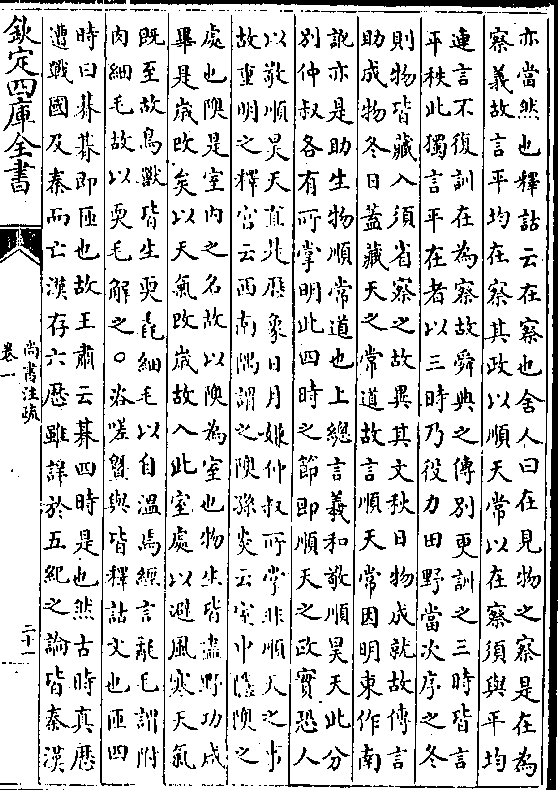 亦當然也釋詁云在察也舍人曰在見物之察是在為
察義故言平均在察其政以順天常以在察須與平均
連言不復訓在為察故舜典之傳別更訓之三時皆言
平秩此獨言平在者以三時乃役力田野當次序之冬
則物皆藏入須省察之故異其文秋日物成就故傳言
助成物冬日蓋藏天之常道故言順天常因明東作南
訛亦是助生物順常道也上總言羲和敬順昊天此分
別仲叔各有所掌明此四時之節即順天之政實恐人
以敬順昊天直是歷象日月嫌仲叔所掌非順天之事
故重明之釋宮云西南隅謂之隩孫炎云室中隱隩之
處也隩是室內之名故以隩為室也物生皆盡野功咸
畢是歲改矣以天氣改歲故入此室處以避風寒天氣
既至故鳥獸皆生耎毳細毛以自溫焉經言氄毛謂附
肉細毛故以耎毛解之○咨嗟暨與皆釋詁文也匝四
時曰朞朞即匝也故王肅云朞四時是也然古時真歷
遭戰國及秦而亡漢存六歷雖詳於五紀之論皆秦漢
欽定四庫全書
尚書注疏
卷一
二十一